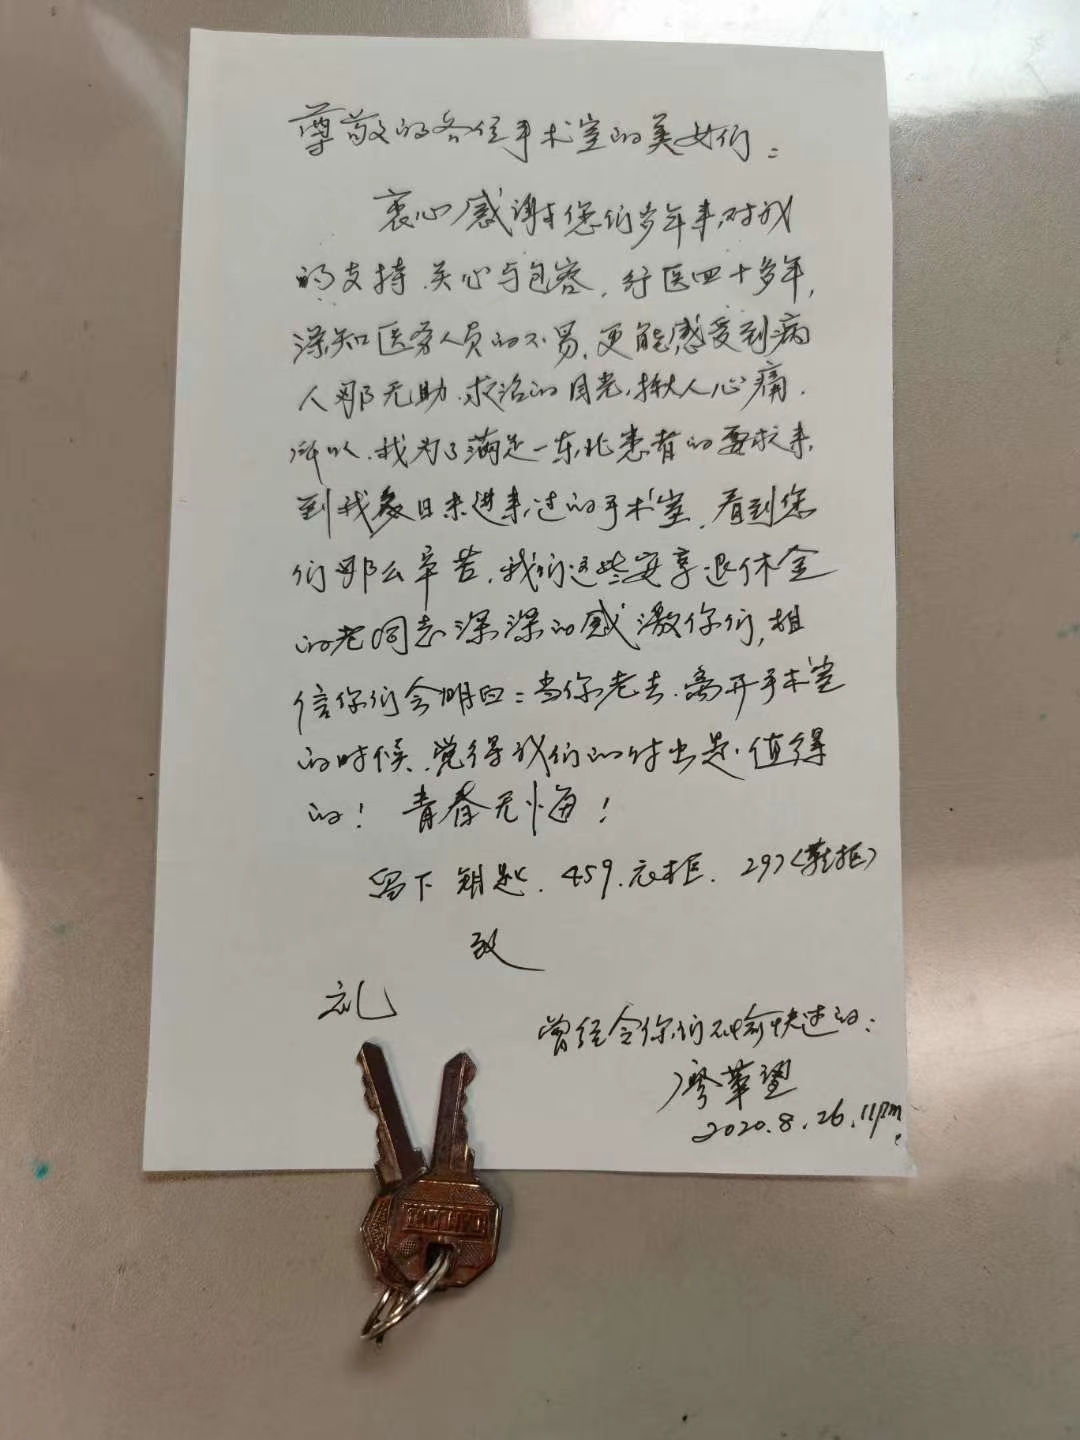 尊敬的各位手术室的美女们：
衷心感谢您们多年来对我
的支持.关心与包容.行医四十多年，
深知医务人员的不易.更能感受到病
人那无助.求治的目光，揪人心痛.
所以.我为了满足一东北患者的要求来，
到我多日未进来过的手术室.看到您
们那么辛苦.我们这些安享退休金
的老同志深深的感激你们，相
信你们会明白：当你老去.离开手术室
的时候.觉得我们的付出是值得
的！青春无悔！
留下钥匙.459.衣柜.297（鞋柜）
致
礼
曾经令你们不愉快过的：
廖華
2020.8.26.11pm.